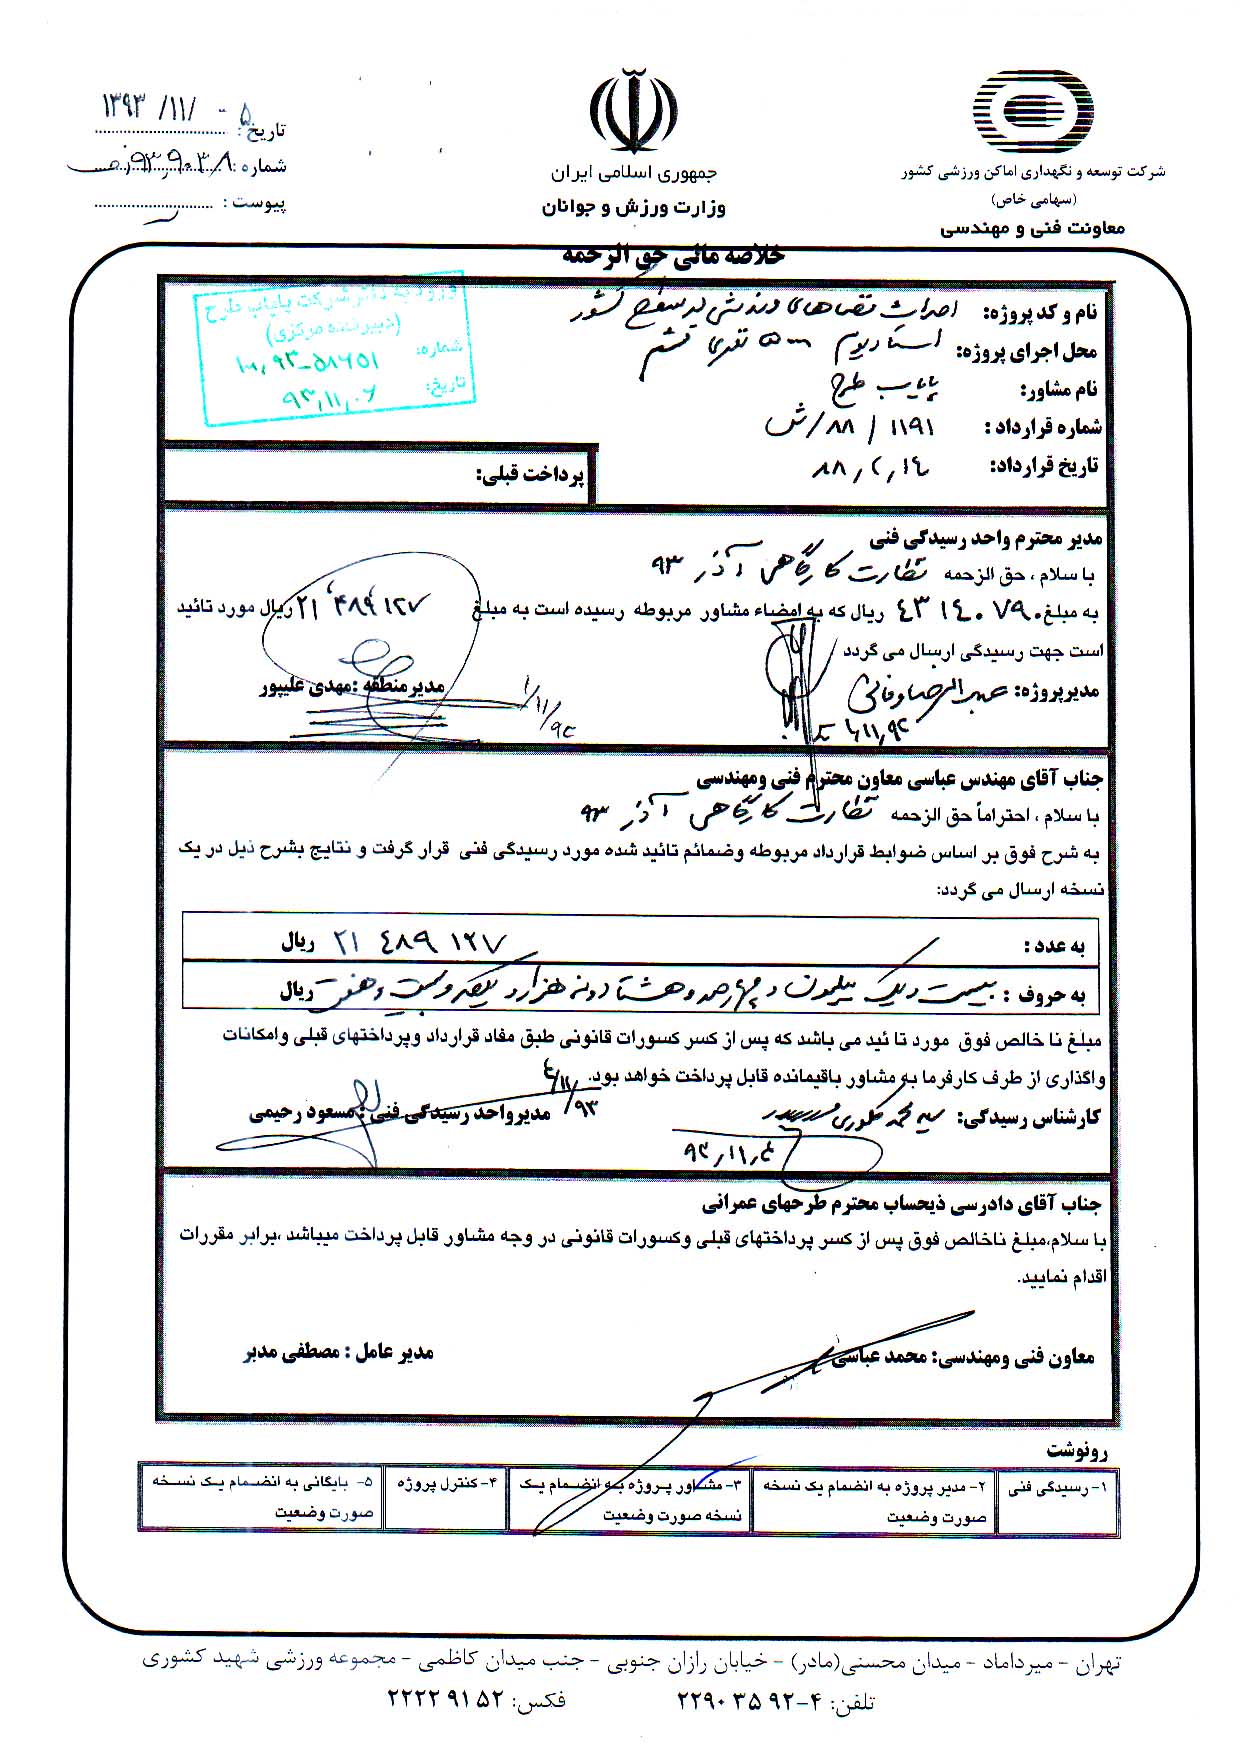 شرکت توسعه و نگهداری اماکن ورزشی کشور
(سهامی خاص)
معاونت فنی و مهندسی
جمهوری اسلامی ایران
وزارت ورزش و جوانان
تاریخ : ۱۳۹۳/۱۱/۰۵
شماره :
پیوست :
خلاصه مالی حق الزحمه
ورود به دفتر شرکت پایاب طرح
(دبیرخانه مرکزی)
شماره:
تاریخ: ۹۳,۱۱,۰۶
نام و کد پروژه: احداث فضاهای ورزشی در سطح کشور
محل اجرای پروژه: استادیوم ۵۰۰۰ نفری قشم
نام مشاور: پایاب طرح
شماره قرارداد : ۱۱۹۱ / ۸۸/ش
تاریخ قرارداد: ۸۸,۲,۱۴
پرداخت قبلی:
مدیر محترم واحد رسیدگی فنی
با سلام ، حق الزحمه نظارت کارگاهی آذر ۹۳
به مبلغ ۴۳۱۴۰۷۹۰ ریال که به امضاء مشاور مربوطه رسیده است به مبلغ ۲۱۴۸۹۱۲۷ ریال مورد تائید
است جهت رسیدگی ارسال می گردد
مدیرپروژه: عبدالرضا وفائی
مدیرمنطقه :مهدی علیپور
جناب آقای مهندس عباسی معاون محترم فنی ومهندسی
با سلام ، احتراماً حق الزحمه نظارت کارگاهی آذر ۹۳
به شرح فوق بر اساس ضوابط قرارداد مربوطه وضمائم تائید شده مورد رسیدگی فنی قرار گرفت و نتایج بشرح ذیل در یک
نسخه ارسال می گردد:
به عدد : ۲۱ ۴۸۹ ۱۲۷ ریال
به حروف : بیست ویک میلیون و چهارصد و هشتاد و نه هزار و یکصد و بیست و هفت ریال
مبلغ نا خالص فوق مورد تا ئید می باشد که پس از کسر کسورات قانونی طبق مفاد قرارداد وپرداختهای قبلی وامکانات
واگذاری از طرف کارفرما به مشاور باقیمانده قابل پرداخت خواهد بود.
کارشناس رسیدگی: سید محمد
مدیرواحد رسیدگی فنی : مسعود رحیمی
۹۳,۱۱,۴
جناب آقای دادرسی ذیحساب محترم طرحهای عمرانی
با سلام،مبلغ ناخالص فوق پس از کسر پرداختهای قبلی وکسورات قانونی در وجه مشاور قابل پرداخت میباشد ،برابر مقررات
اقدام نمایید.
معاون فنی ومهندسی: محمد عباسی
مدیر عامل : مصطفی مدبر
رونوشت
۱- رسیدگی فنی
۲- مدیر پروژه به انضمام یک نسخه
صورت وضعیت
۳- مشاور پروژه به انضمام یک
نسخه صورت وضعیت
۴- کنترل پروژه
۵- بایگانی به انضمام یک نسخه
صورت وضعیت
تهران - میرداماد - میدان محسنی(مادر) - خیابان رازان جنوبی - جنب میدان کاظمی - مجموعه ورزشی شهید کشوری
تلفن: ۴-۲۲۹۰۳۵۹۲ فکس: ۲۲۲۲۹۱۵۲